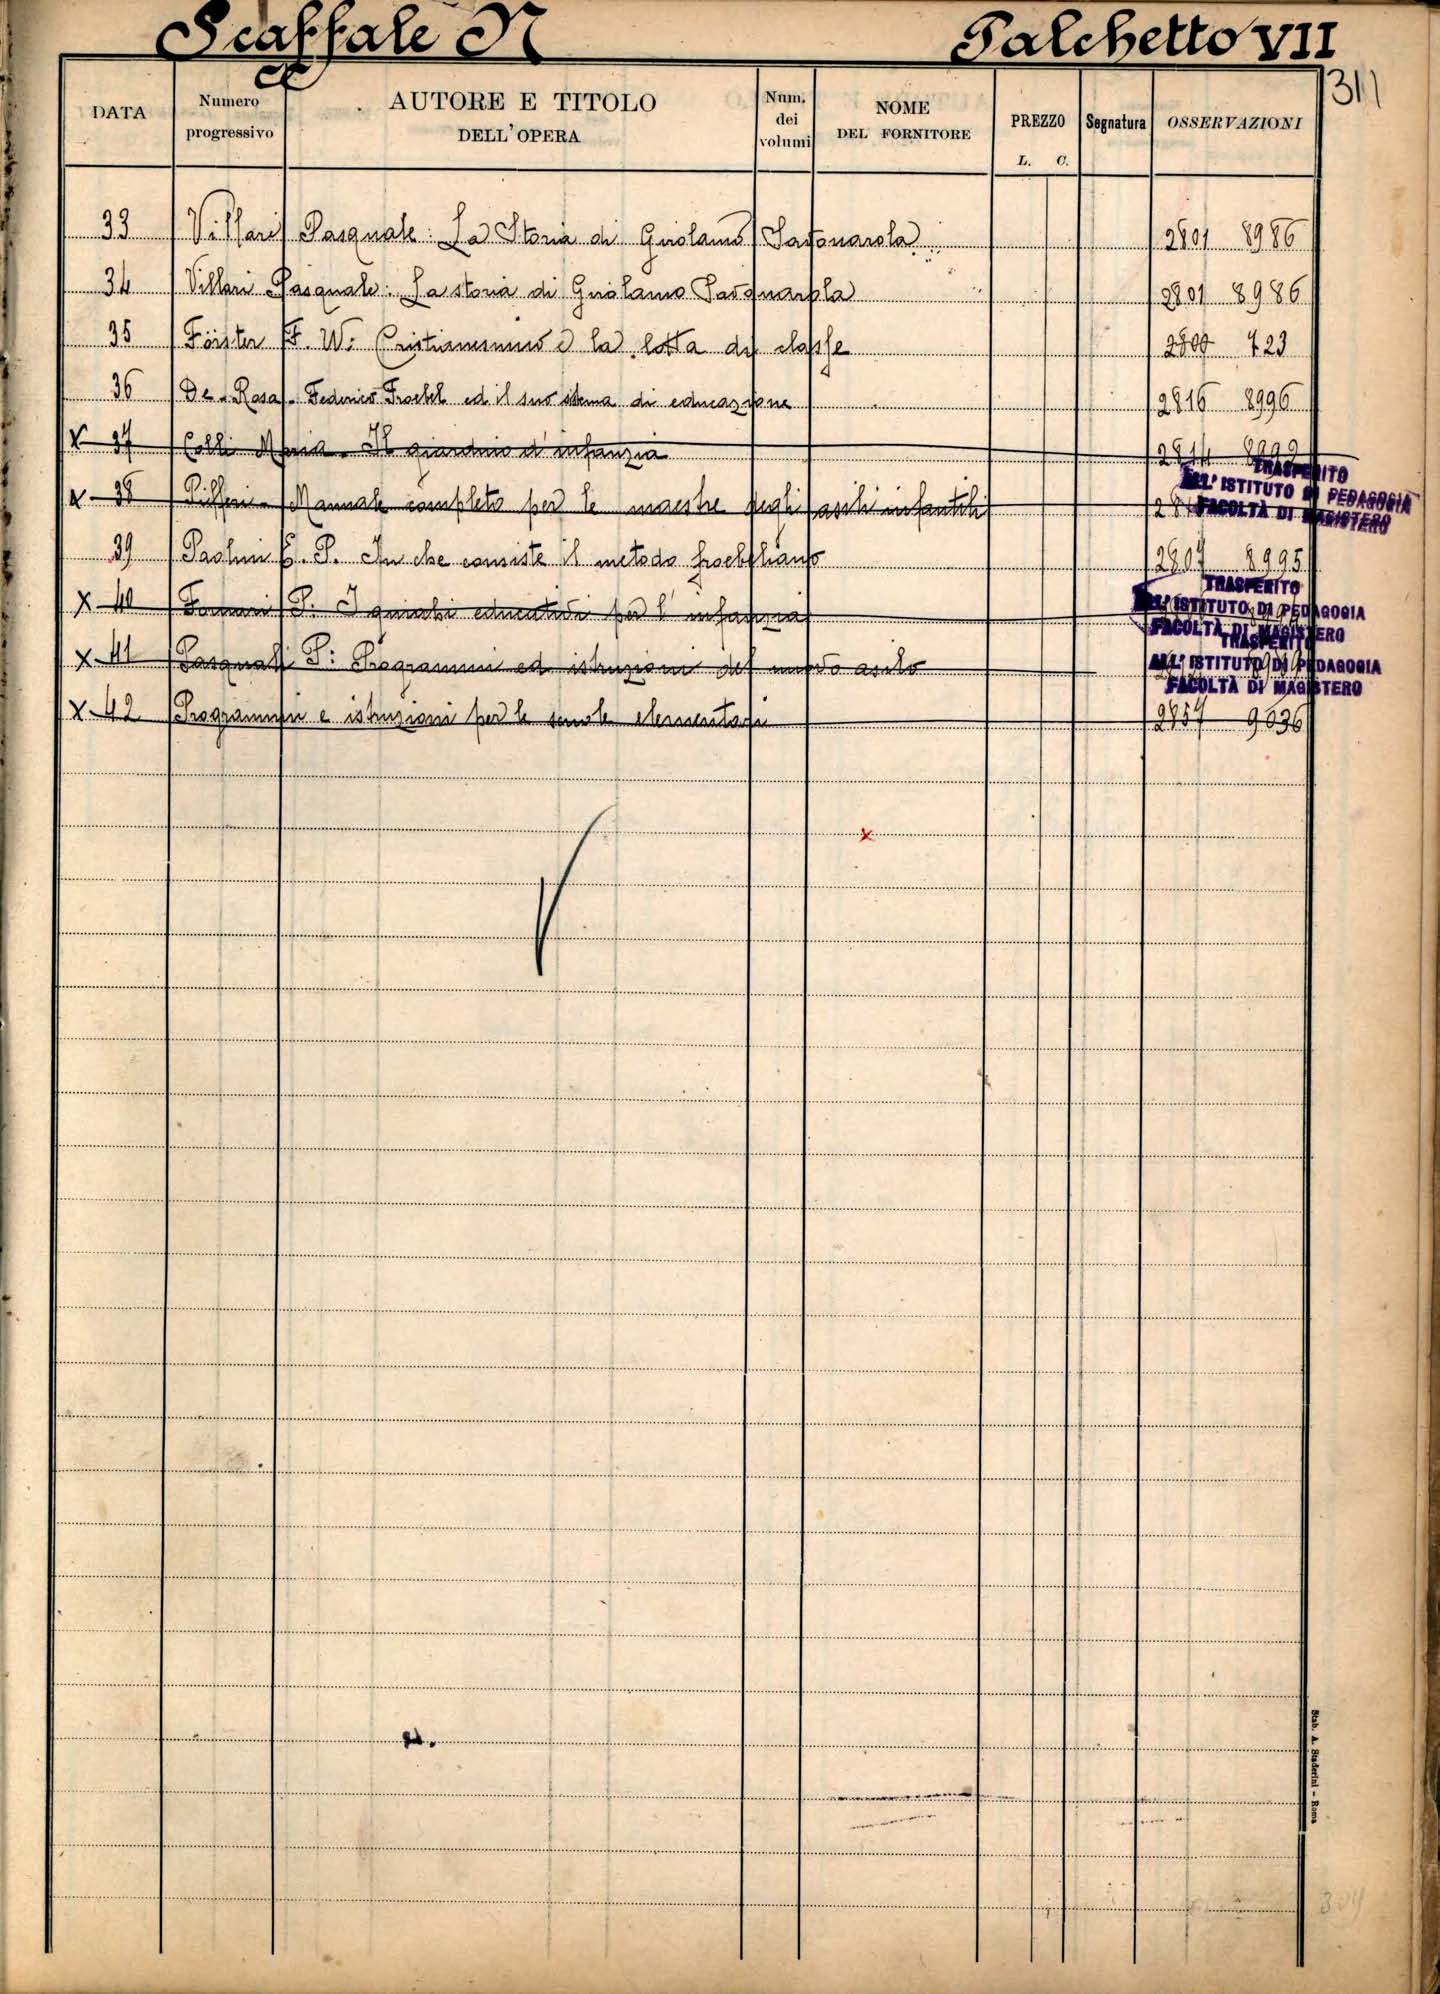 Scaffale N Palchetto VII
311
DATA Numero progressivo AUTORE E TITOLO DELL'OPERA Num. dei volumi NOME DEL FORNITORE PREZZO L. C. Segnatura OSSERVAZIONI
33 Villari Pasquale: La Storia di Girolamo Savonarola 2801 8986
34 Villari Pasquale: La storia di Girolamo Savonarola 2801 8986
35 Förster F. W: Cristianesimo e la lotta di classe 2800 723
36 De-Rosa. Federico Froebel ed il suo sistema di educazione 2816 8996
X 37 Colli Maria. Il giardino d'infanzia 2814 8992
TRASFERITO
ALL'ISTITUTO DI PEDAGOGIA
FACOLTÀ DI MAGISTERO
X 38 Pifferi - Manuale completo per le maestre degli asili infantili
39 Paolini E. P. In che consiste il metodo froebeliano 2807 8995
TRASFERITO
ALL'ISTITUTO DI PEDAGOGIA
FACOLTÀ DI MAGISTERO
X 40 Fornari P. I giuochi educativi per l'infanzia
TRASFERITO
ALL'ISTITUTO DI PEDAGOGIA
FACOLTÀ DI MAGISTERO
X 41 Pasquali P: Programmi ed istruzioni del nuovo asilo
X 42 Programmi e istruzioni per le scuole elementari 2857 9036
x
Stab. A. Staderini - Roma
304